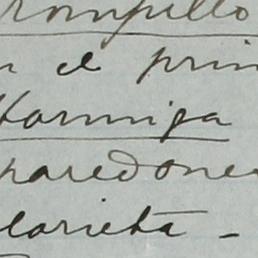 rompillo
n el prin
Hormiga
paredones
lorieta -